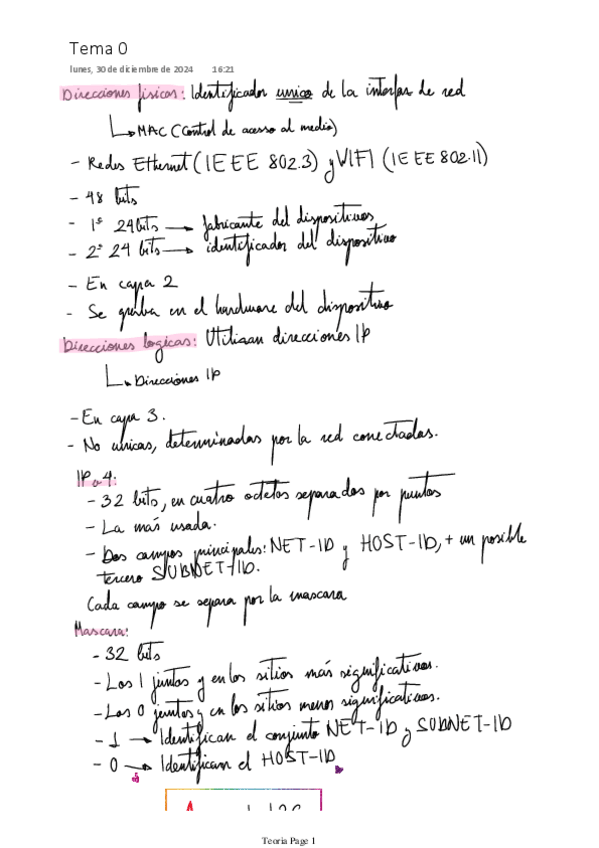 Tema 0
lunes, 30 de diciembre de 2024 16:21
Direcciones fisicas: Identificador unico de la interfaz de red
MAC (Control de acceso al medio)
- Redes Ethernet (IEEE 802.3) y WIFI (IEEE 802.11)
- 48 bits
- 1º 24 bits → fabricante del dispositivos
- 2º 24 bits → identificador del dispositivo
- En capa 2
- Se graba en el hardware del dispositivo
Direcciones logicas: Utilizan direcciones IP
Direcciones IP
- En capa 3.
- No unicas, determinadas por la red conectadas.
IPv4:
- 32 bits, en cuatro octetos separados por puntos
- La más usada.
- Dos campos principales: NET-ID y HOST-ID, + un posible
tercero SUBNET-ID.
Cada campo se separa por la mascara
Mascara:
- 32 bits
- Los 1 juntos y en los sitios más significativos.
- Los 0 juntos y en los sitios menos significativos.
- 1 → Identifican el conjunto NET-ID y SUBNET-ID
- 0 → Identifican el HOST-ID
Teoria Page 1